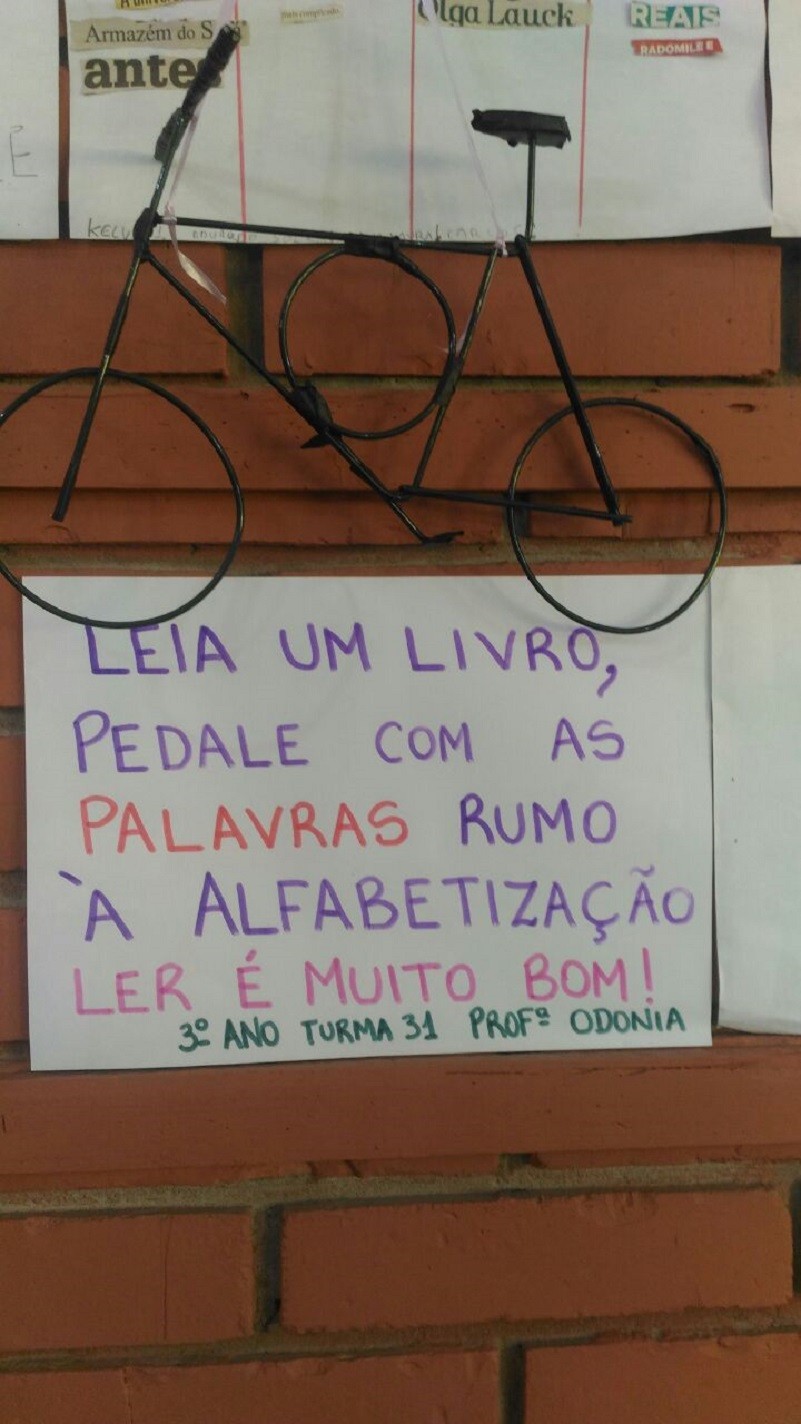 Armazém do S
antes
Olga Lauck
REAIS
RADOMILE E
LEIA UM LIVRO,
PEDALE COM AS
PALAVRAS RUMO
À ALFABETIZAÇÃO
LER É MUITO BOM!
3º ANO TURMA 31 PROFª ODONIA